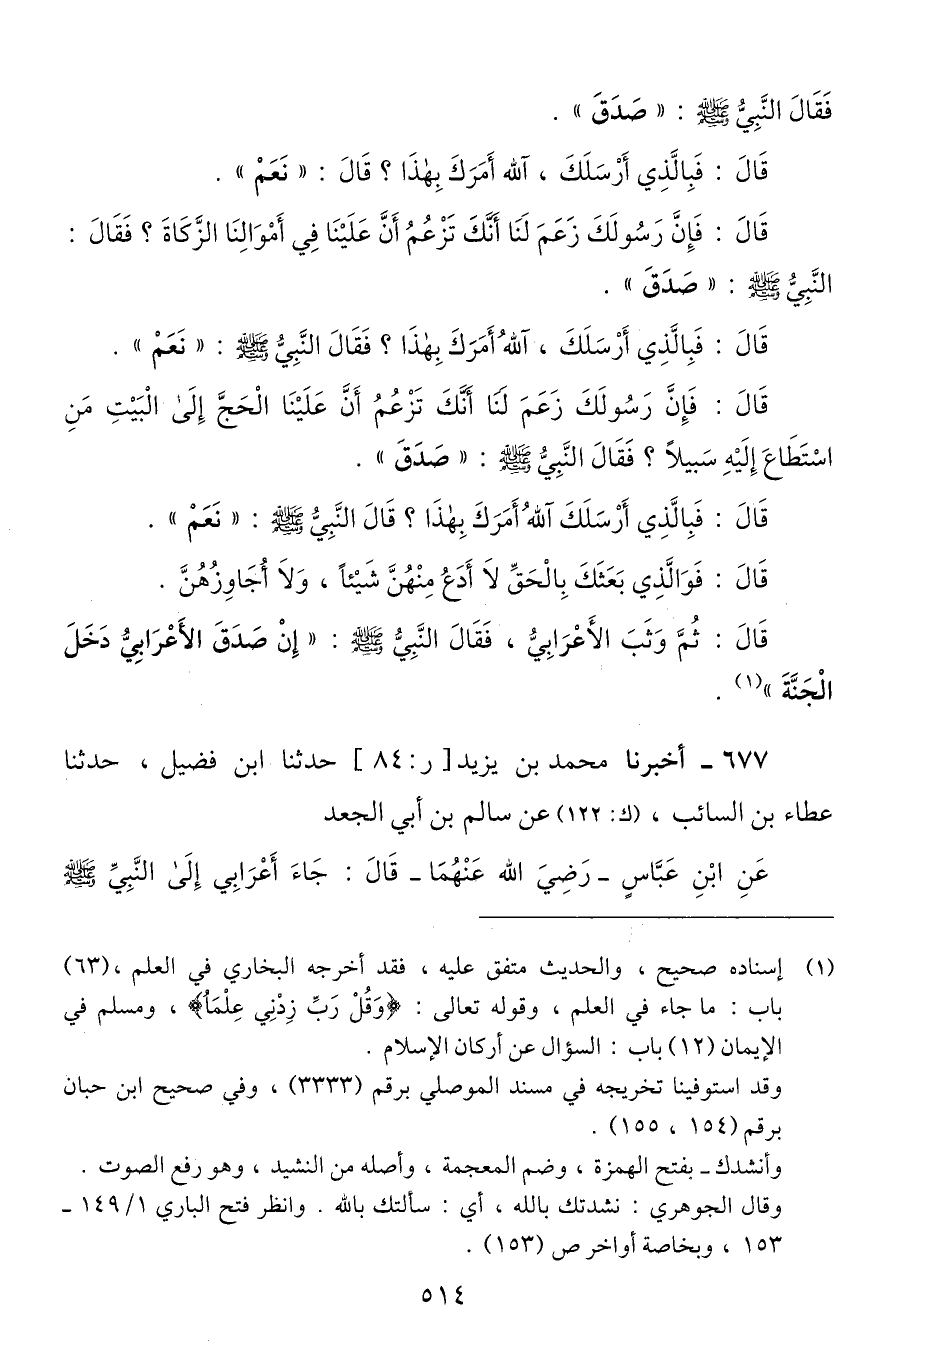 فَقَالَ النَّبِيُّ ﷺ : « صَدَقَ » .
قَالَ : فَبِالَّذِي أَرْسَلَكَ ، آللهُ أَمَرَكَ بِهٰذَا ؟ قَالَ : « نَعَمْ » .
قَالَ : فَإِنَّ رَسُولَكَ زَعَمَ لَنَا أَنَّكَ تَزْعُمُ أَنَّ عَلَيْنَا فِي أَمْوَالِنَا الزَّكَاةَ ؟ فَقَالَ :
النَّبِيُّ ﷺ : « صَدَقَ » .
قَالَ : فَبِالَّذِي أَرْسَلَكَ ، آللهُ أَمَرَكَ بِهٰذَا ؟ فَقَالَ النَّبِيُّ ﷺ : « نَعَمْ » .
قَالَ : فَإِنَّ رَسُولَكَ زَعَمَ لَنَا أَنَّكَ تَزْعُمُ أَنَّ عَلَيْنَا الْحَجَّ إِلَىٰ الْبَيْتِ مَنِ
اسْتَطَاعَ إِلَيْهِ سَبِيلاً ؟ فَقَالَ النَّبِيُّ ﷺ : « صَدَقَ » .
قَالَ : فَبِالَّذِي أَرْسَلَكَ آللهُ أَمَرَكَ بِهٰذَا ؟ قَالَ النَّبِيُّ ﷺ : « نَعَمْ » .
قَالَ : فَوَالَّذِي بَعَثَكَ بِالْحَقِّ لاَ أَدَعُ مِنْهُنَّ شَيْئاً ، وَلاَ أُجَاوِزُهُنَّ .
قَالَ : ثُمَّ وَثَبَ الأَعْرَابِيُّ ، فَقَالَ النَّبِيُّ ﷺ : « إِنْ صَدَقَ الأَعْرَابِيُّ دَخَلَ
الْجَنَّةَ »(١) .
٦٧٧ ـ أخبرنا محمد بن يزيد [ ر: ٨٤ ] حدثنا ابن فضيل ، حدثنا
عطاء بن السائب ، (ك: ١٢٢) عن سالم بن أبي الجعد
عَنِ ابْنِ عَبَّاسٍ ـ رَضِيَ الله عَنْهُمَا ـ قَالَ : جَاءَ أَعْرَابِي إِلَىٰ النَّبِيِّ ﷺ
(١) إسناده صحيح ، والحديث متفق عليه ، فقد أخرجه البخاري في العلم ،(٦٣)
باب : ما جاء في العلم ، وقوله تعالى : ﴿وَقُلْ رَبِّ زِدْنِي عِلْماً﴾ ، ومسلم في
الإيمان (١٢) باب : السؤال عن أركان الإسلام .
وقد استوفينا تخريجه في مسند الموصلي برقم (٣٣٣٣) ، وفي صحيح ابن حبان
برقم (١٥٤ ، ١٥٥) .
وأنشدك ـ بفتح الهمزة ، وضم المعجمة ، وأصله من النشيد ، وهو رفع الصوت .
وقال الجوهري : نشدتك بالله ، أي : سألتك بالله . وانظر فتح الباري ١/ ١٤٩ ـ
١٥٣ ، وبخاصة أواخر ص (١٥٣) .
٥١٤